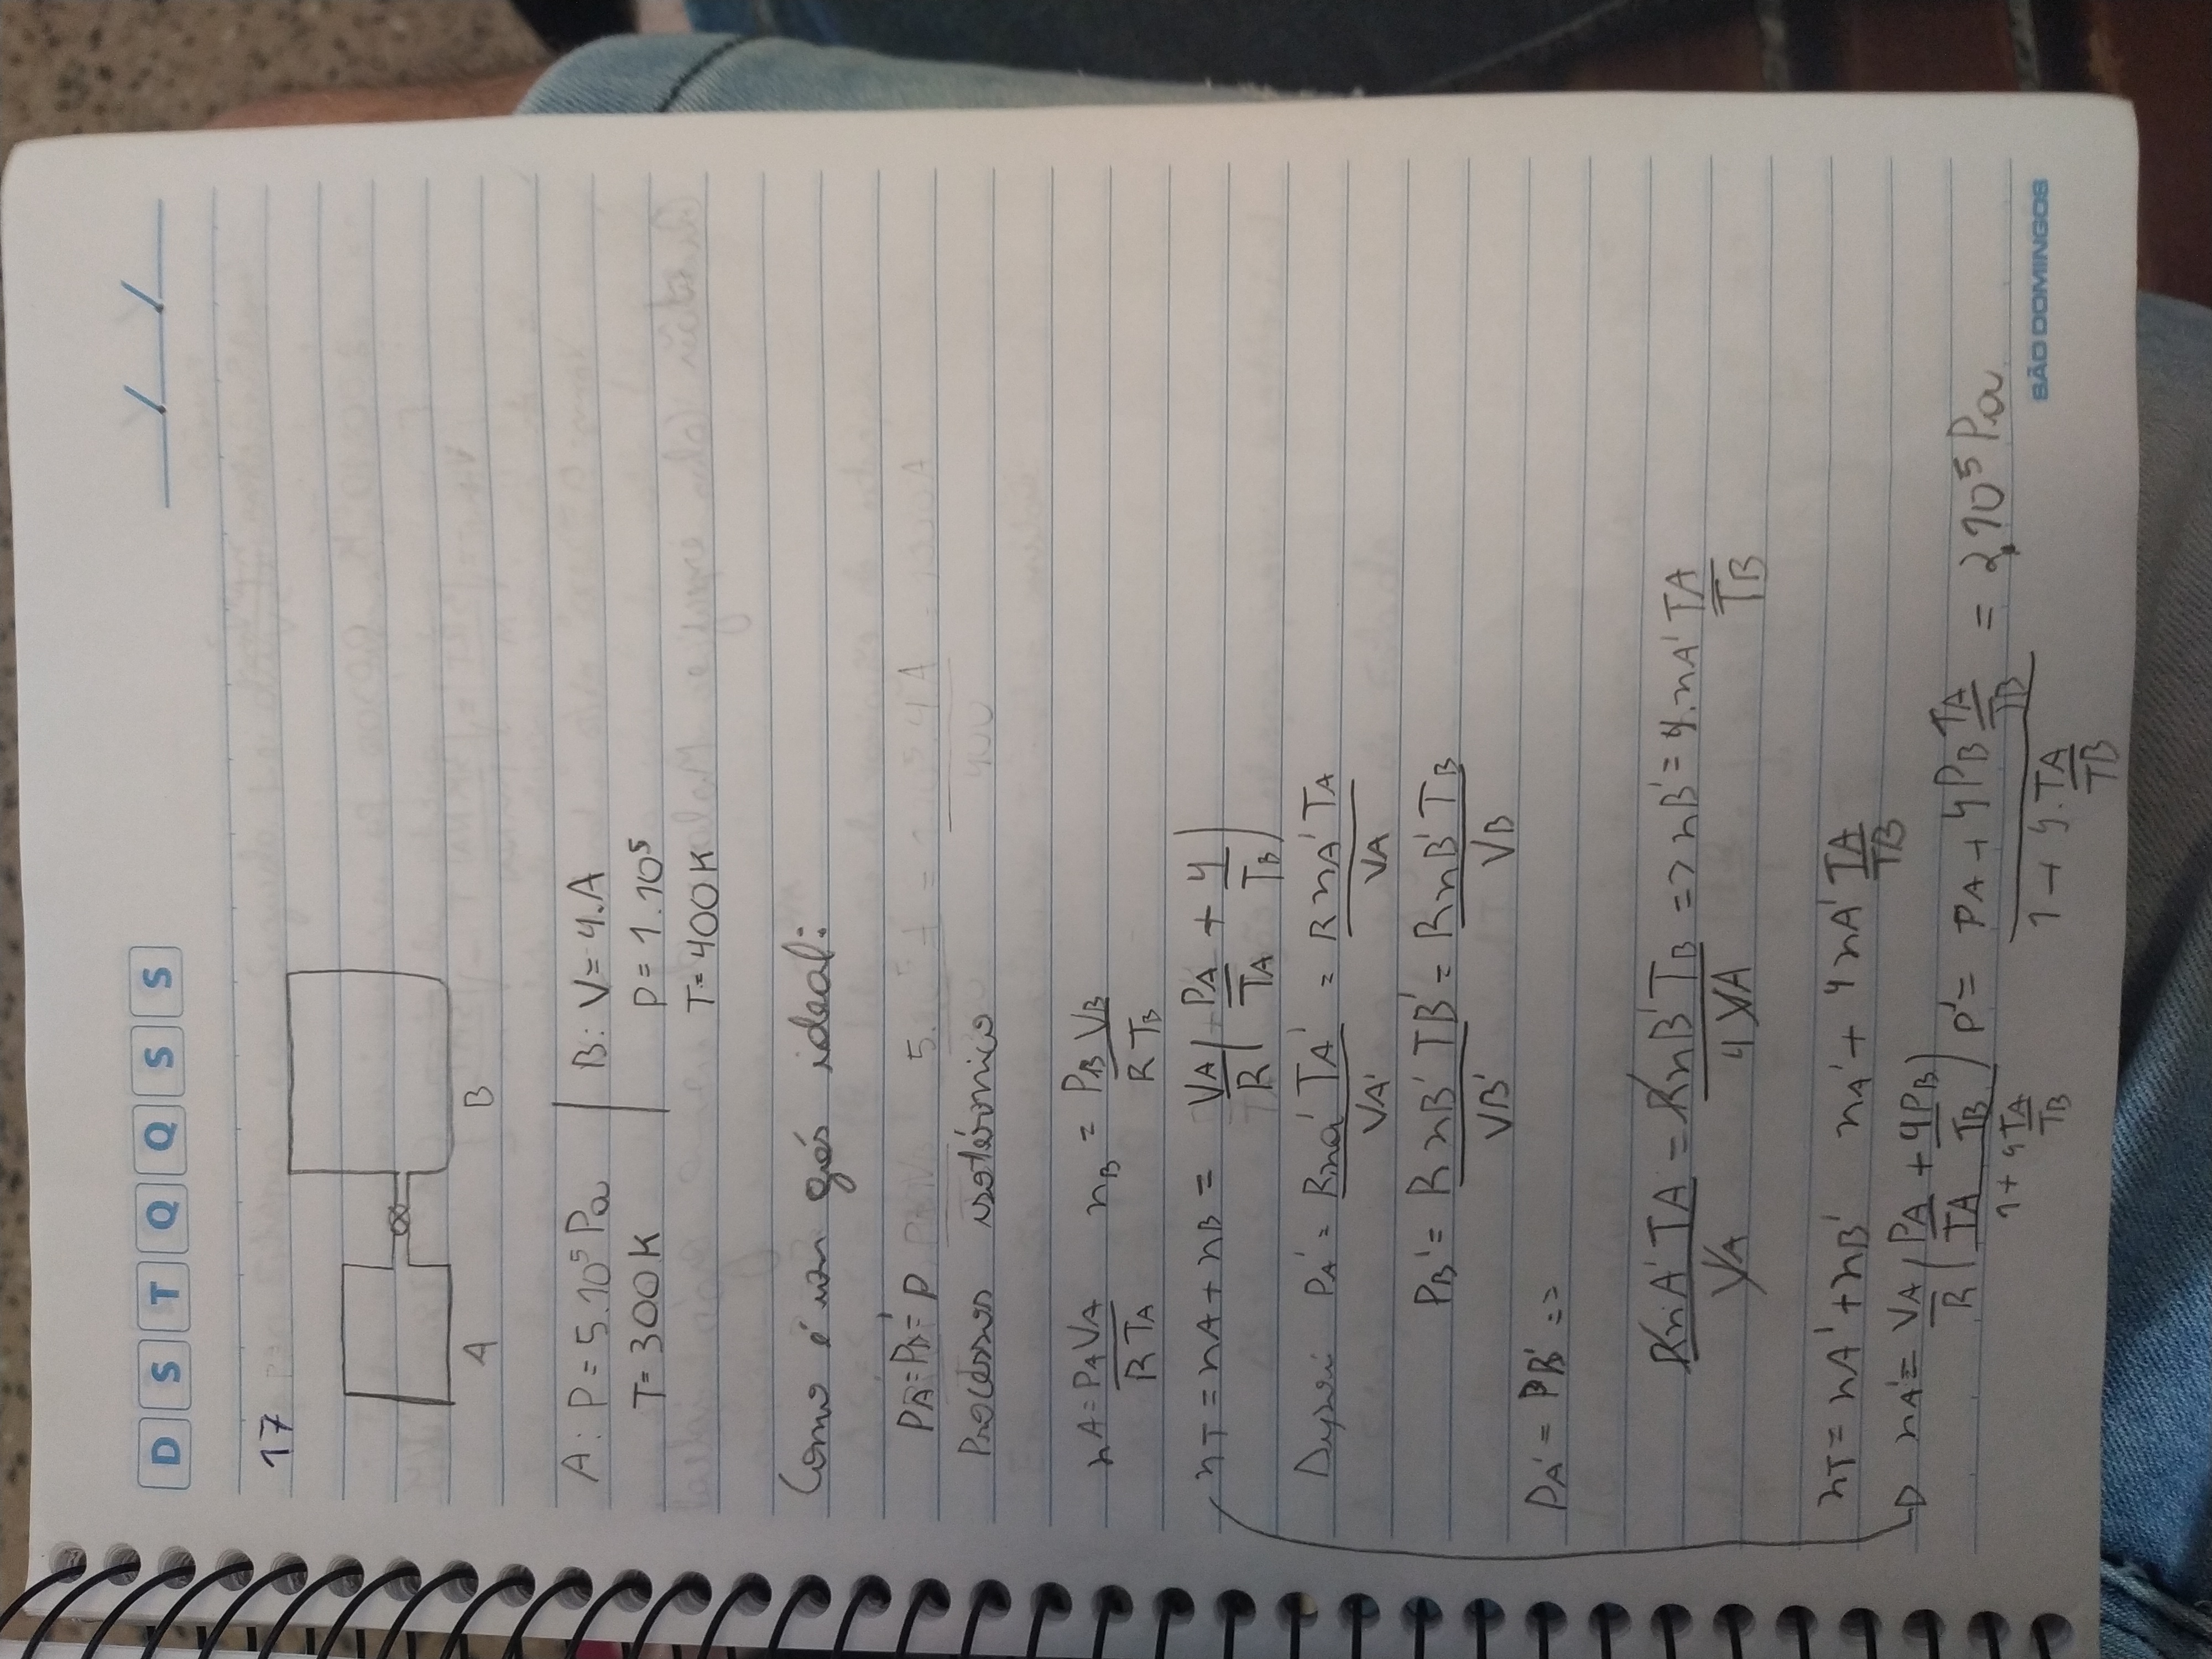 D S T Q Q S S
17
A B
A: P = 5.10⁵ Pa | B: V = 4.A
T = 300K P = 1.10⁵
T = 400K
Como é um gás ideal:
PA' = PB' = P
Processos isotérmico
nA = PAVA / RTA nB = PBVB / RTB
nT = nA + nB = VA/R (PA/TA + 4/TB)
PA' = Rna'TA'/VA' = RnA'TA/VA
PB' = RnB'TB'/VB' = RnB'TB/VB
PA' = PB' =>
RnA'TA/VA = RnB'TB/4VA => nB' = 4.nA' TA/TB
nT = nA' + nB' nA' + 4nA' TA/TB
nA' = VA/R (PA/TA + 4PB/TB) / 1 + 4TA/TB P' = PA + 4PB TA/TB / 1 + 4.TA/TB = 2.10⁵ Pa.
SÃO DOMINGOS